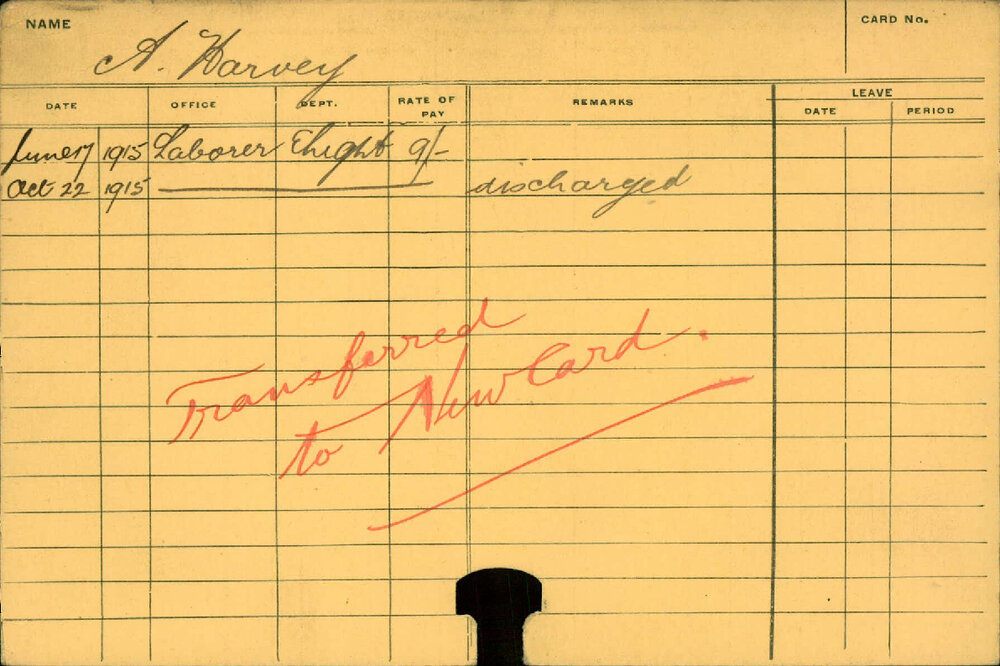 NAME
CARD No.
A. Harvey
DATE
OFFICE
DEPT.
RATE OF PAY
REMARKS
LEAVE
DATE
PERIOD
June 17 1915 Laborer Elight 9/-
Oct 22 1915 discharged
Transferred
to New Card.